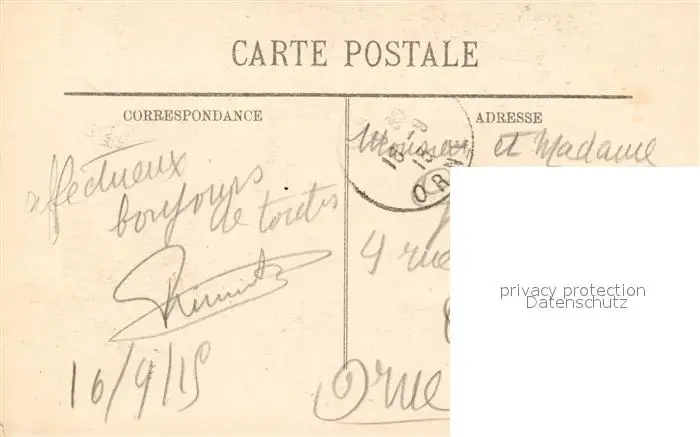 CARTE POSTALE
CORRESPONDANCE
ADRESSE
Monsieur et Madame
affectueux
bonjours
de toutes
4 rue
Orne
16/9/15
ORN
privacy protection
Datenschutz